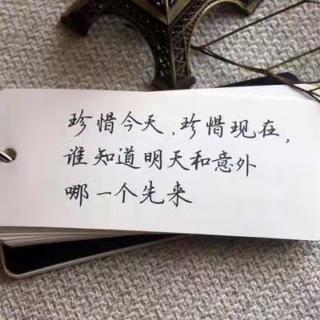 珍惜今天.珍惜现在,
谁知道明天和意外
哪一个先来